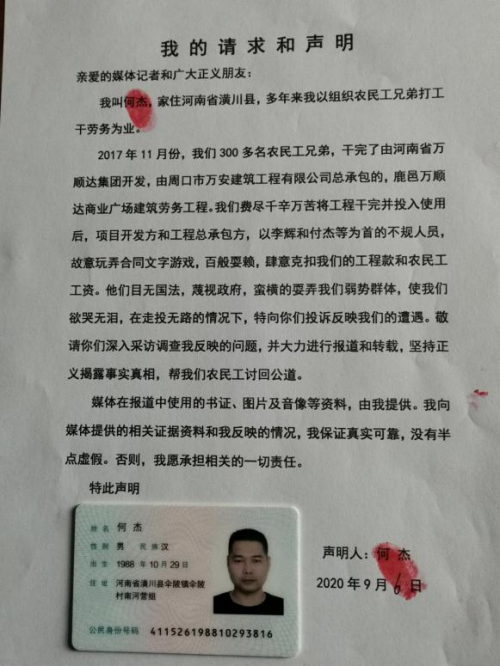 我的请求和声明
亲爱的媒体记者和广大正义朋友：
我叫何杰，家住河南省潢川县，多年来我以组织农民工兄弟打工
干劳务为业。
2017年11月份，我们300多名农民工兄弟，干完了由河南省万
顺达集团开发，由周口市万安建筑工程有限公司总承包的，鹿邑万顺
达商业广场建筑劳务工程。我们费尽千辛万苦将工程干完并投入使用
后，项目开发方和工程总承包方，以李辉和付杰等为首的不规人员，
故意玩弄合同文字游戏，百般耍赖，肆意克扣我们的工程款和农民工
工资。他们目无国法，蔑视政府，蛮横的耍弄我们弱势群体，使我们
欲哭无泪，在走投无路的情况下，特向你们投诉反映我们的遭遇。敬
请你们深入采访调查我反映的问题，并大力进行报道和转载，坚持正
义揭露事实真相，帮我们农民工讨回公道。
媒体在报道中使用的书证、图片及音像等资料，由我提供。我向
媒体提供的相关证据资料和我反映的情况，我保证真实可靠，没有半
点虚假。否则，我愿承担相关的一切责任。
特此声明
姓名 何杰
性别 男 民族 汉
出生 1988年10月29日
住址 河南省潢川县伞陂镇伞陂
村南河营组
公民身份号码 411526198810293816
声明人：何杰
2020年9月6日